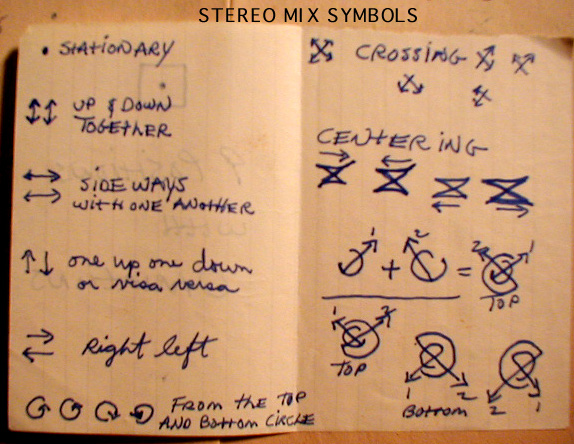 STEREO MIX SYMBOLS
• STATIONARY
UP & DOWN
TOGETHER
SIDE WAYS
WITH ONE ANOTHER
one up one down
or visa versa
Right left
FROM THE TOP
AND BOTTOM CIRCLE
CROSSING
CENTERING
1 2
+ = 2 1
TOP
1 2
TOP
1 2
BOTTOM
2 1